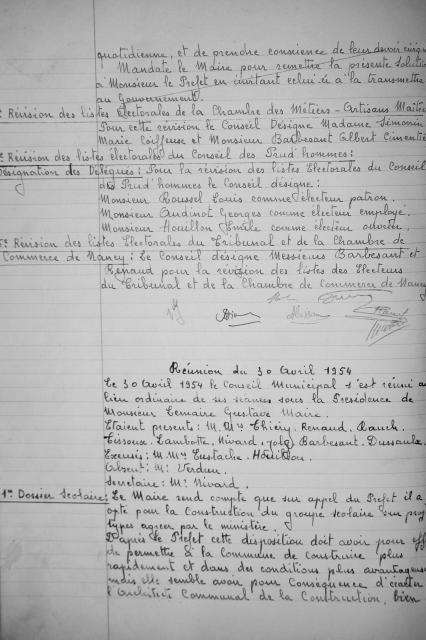 quotidienne, et de prendre conscience de leur devoir
Mandate le Maire pour remettre la présente
à Monsieur le Préfet en invitant celui-ci à la transmettre
au Gouvernement.
Révision des listes Electorales de la Chambre des Métiers - Artisans
Pour cette révision le Conseil Désigne Madame Simonin
Marie Coiffeuse et Monsieur Barbesant Albert
Révision des listes electorales du Conseil des Prud'hommes :
Désignation des Délégués : Pour la révision des listes Electorales du Conseil
des Prud'hommes le Conseil désigne :
Monsieur Roussel Louis comme électeur patron.
Monsieur Audinot Georges comme électeur employé.
Monsieur Houillon Emile comme électeur ouvrier.
5° Révision des listes Electorales du Tribunal et de la Chambre de
Commerce de Nancy : Le Conseil désigne Messieurs Barbesant et
Renaud pour la révision des listes des Electeurs
du Tribunal et de la Chambre de Commerce de Nancy
Réunion du 30 Avril 1954
Le 30 Avril 1954 le Conseil Municipal s'est réuni au
lieu ordinaire de ses séances sous la Présidence de
Monsieur Lemaire Gustave Maire.
Etaient présents : M. Mrs Thiéry. Renaud. Rauch.
Lambotte, Nivard, Barbesant. Dussaulx.
Excusés : M Mrs Eustache. Houillon.
Absent : Mr Verdun.
Secrétaire : Mr Nivard.
1° Dossier Scolaire : Le Maire rend compte que sur appel du Préfet il a
opté pour la Construction du groupe scolaire sur
types agréer par le ministère.
D'après le Préfet cette disposition doit avoir pour
de permettre à la Commune de Construire plus
rapidement et dans des conditions plus
mais elle semble avoir pour Conséquence d'écarter
l'Architecte Communal de la Construction, bien